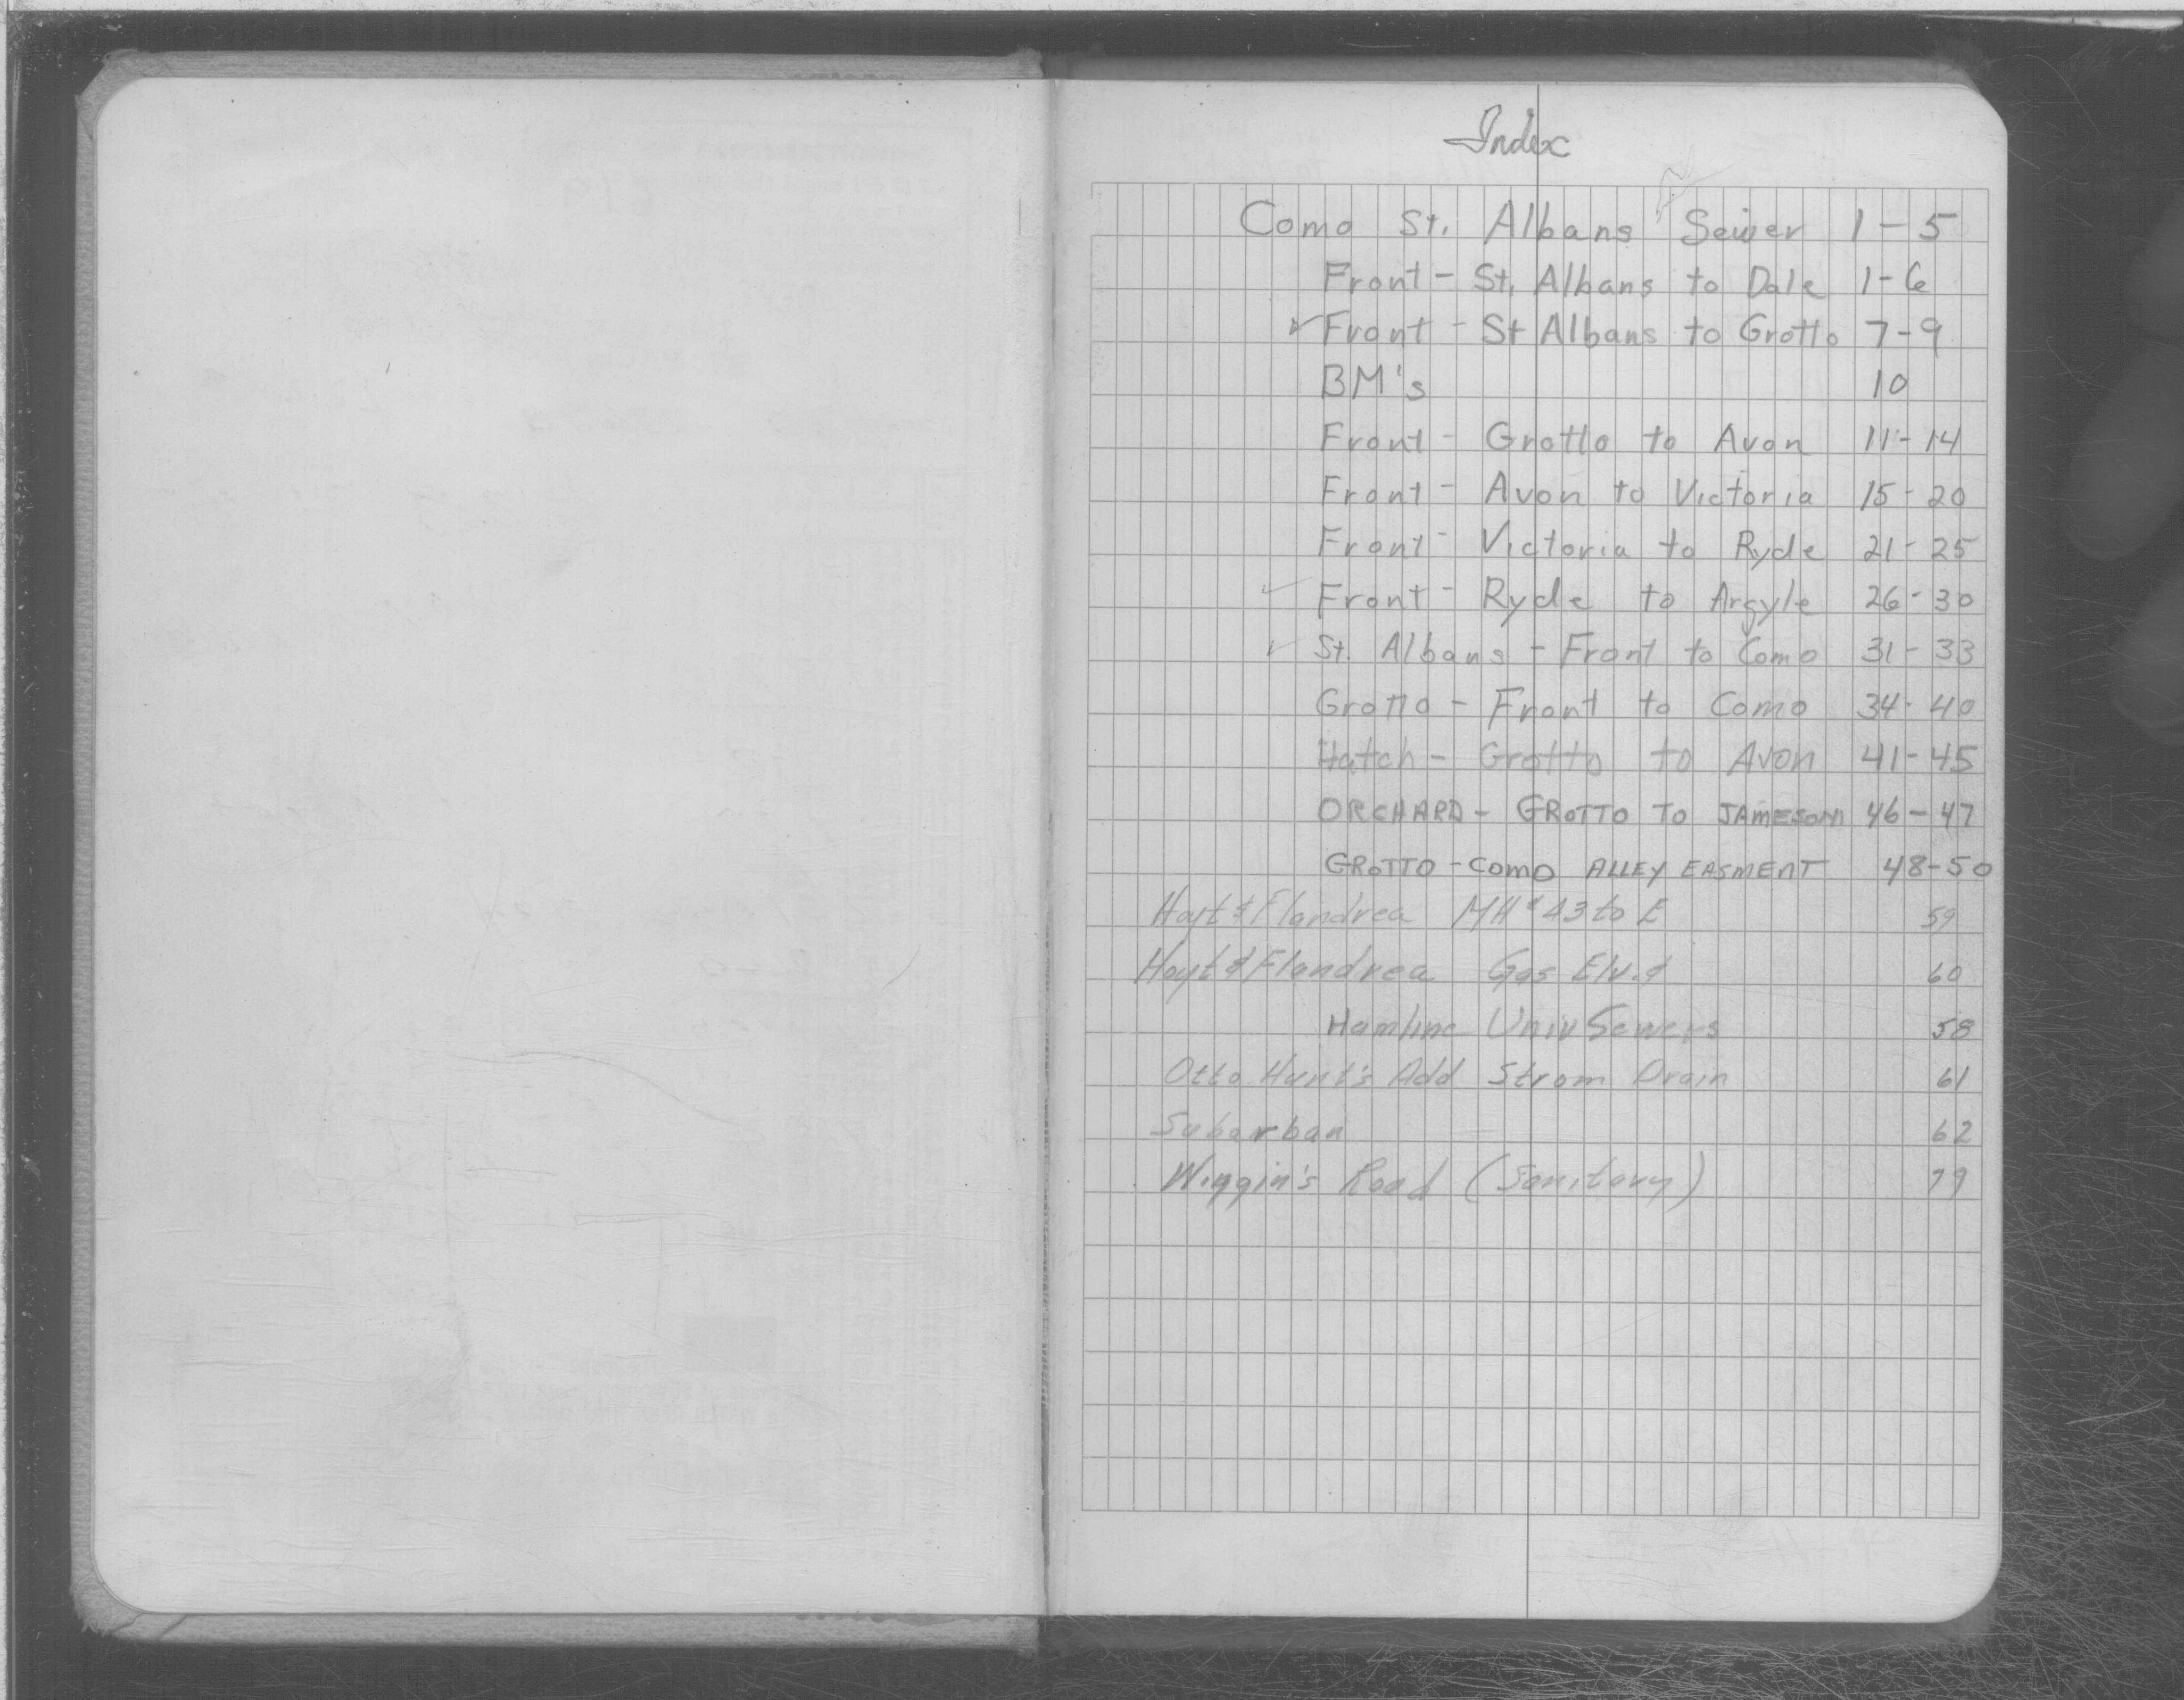 Index
Como St. Albans Sewer 1-5
Front - St. Albans to Dale 1-6
✓ Front - St Albans to Grotto 7-9
BM's 10
Front - Grotto to Avon 11-14
Front - Avon to Victoria 15-20
Front - Victoria to Ryde 21-25
✓ Front - Ryde to Argyle 26-30
✓ St. Albans - Front to Como 31-33
Grotto - Front to Como 34-40
Hatch - Grotto to Avon 41-45
ORCHARD - GROTTO TO JAMESON 46-47
GROTTO - COMO ALLEY EASMENT 48-50
Hoyt & Flandrea MH # 43 to E 59
Hoyt & Flandrea Gas Elv. 60
Hamline Univ Sewers 58
Otto Hunt's Add Strom Drain 61
Subarban 62
Wiggin's Road (Sanitary) 79